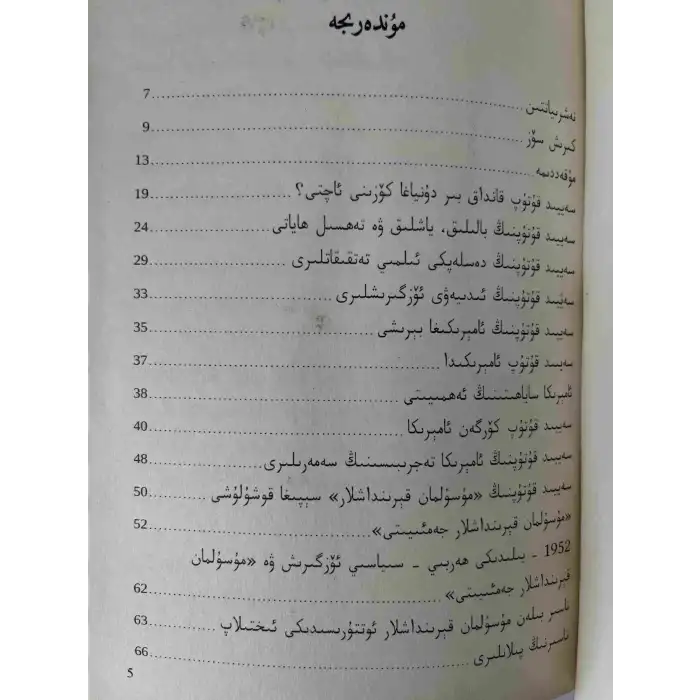 مۇندەرىجە
نەشرىياتتىن ........ 7
كىرىش سۆز ........ 9
مۇقەددىمە ........ 13
سەييىد قۇتۇپ قانداق بىر دۇنياغا كۆزىنى ئاچتى؟ ........ 19
سەييىد قۇتۇپنىڭ بالىلىق، ياشلىق ۋە تەھسىل ھاياتى ........ 24
سەييىد قۇتۇپنىڭ دەسلەپكى ئىلمىي تەتقىقاتلىرى ........ 29
سەييىد قۇتۇپنىڭ ئىدىيەۋى ئۆزگىرىشلىرى ........ 33
سەييىد قۇتۇپنىڭ ئامېرىكىغا بېرىشى ........ 35
سەييىد قۇتۇپ ئامېرىكىدا ........ 37
ئامېرىكا ساياھىتىنىڭ ئەھمىيىتى ........ 38
سەييىد قۇتۇپ كۆرگەن ئامېرىكا ........ 40
سەييىد قۇتۇپنىڭ ئامېرىكا تەجرىبىسىنىڭ سەمەرىلىرى ........ 48
سەييىد قۇتۇپنىڭ «مۇسۇلمان قېرىنداشلار» سېپىغا قوشۇلۇشى ........ 50
«مۇسۇلمان قېرىنداشلار جەمئىيىتى» ........ 52
1952 - يىلىدىكى ھەربىي - سىياسىي ئۆزگىرىش ۋە «مۇسۇلمان
قېرىنداشلار جەمئىيىتى» ........ 62
ناسىر بىلەن مۇسۇلمان قېرىنداشلار ئوتتۇرىسىدىكى ئىختىلاپ ........ 63
ناسىرنىڭ پىلانلىرى ........ 66
5